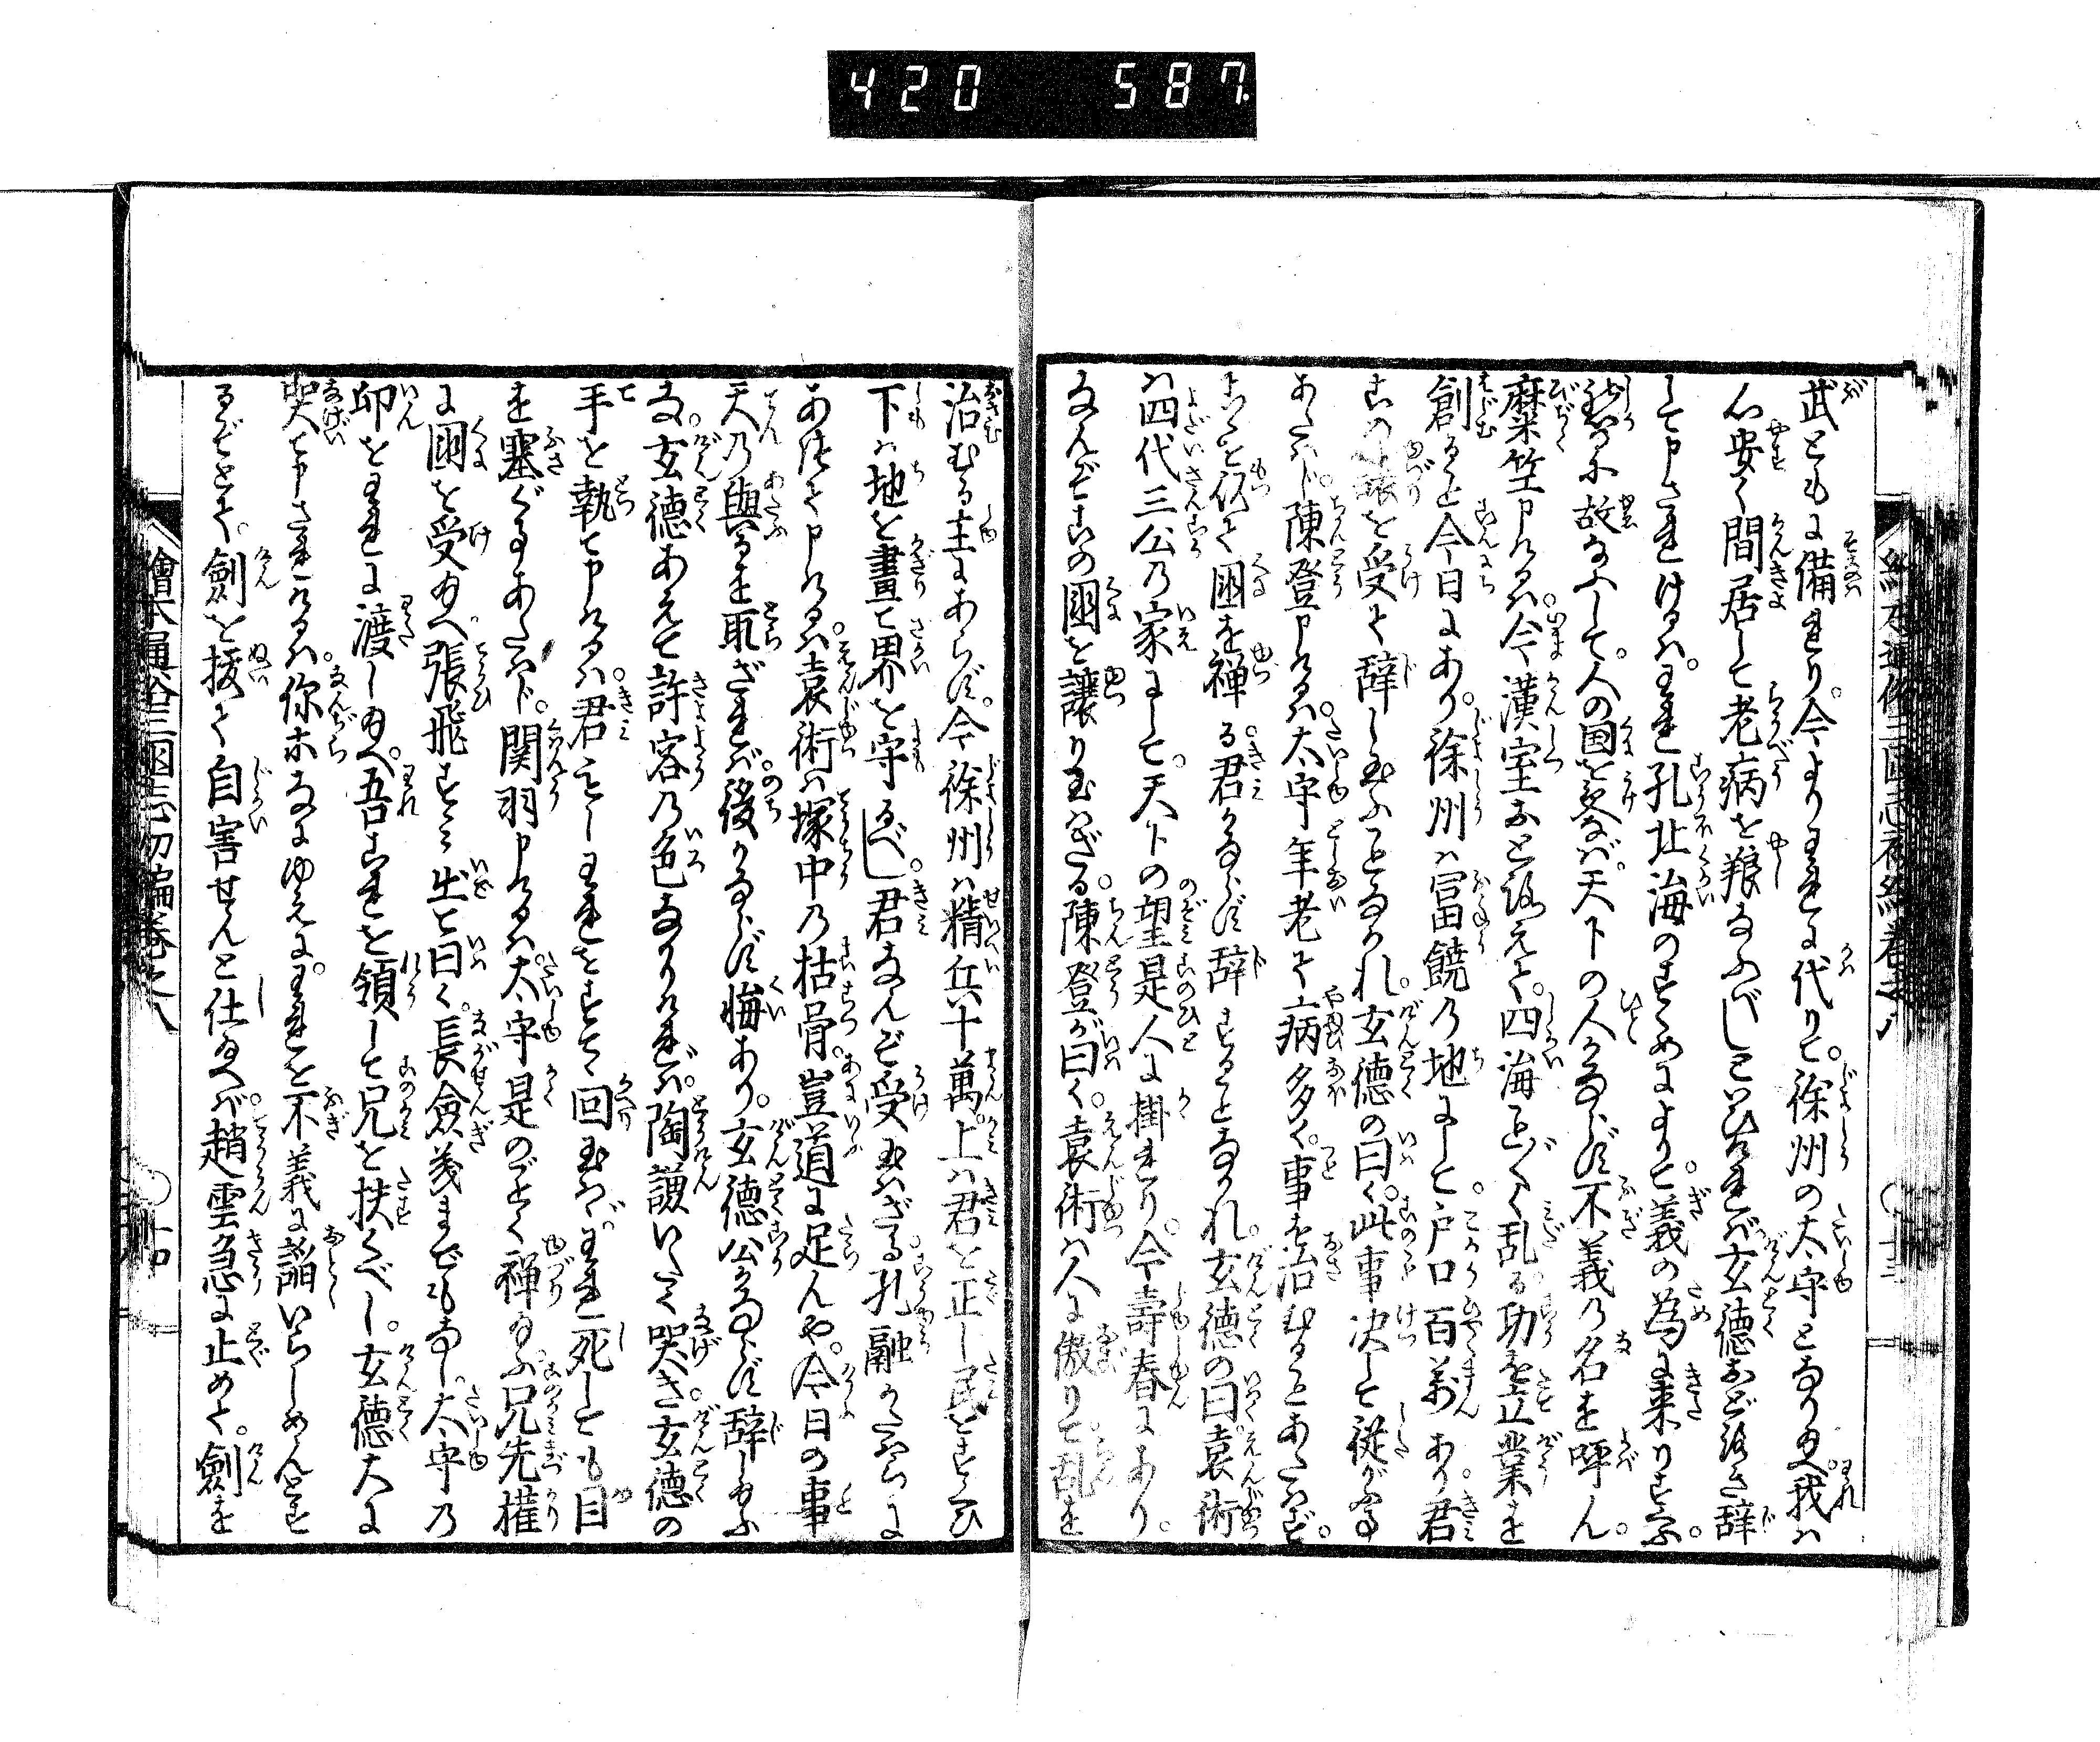 420 587
武ともに備れり。今よりわれに代りて。徐州の太守となり玉へ。我は
心安く間居して老病を養なふべしといひければ玄徳おどろき辞
して申されけるは。われ孔北海のすゝめによりて。義の為に来りすくふ。
然るに故なふして。人の国を受なば。天下の人かならず不義の名を呼ん。
糜竺申けるは。今漢室おとろえて。四海こと〴〵く乱る功を立業を
創ること今日にあり。徐州は富饒の地にして。戸口百万あり。君
この譲を受て辞し玉ふことなかれ。玄徳の曰く。此事決して従がふ事
あたはじ。陳登申けるは。太守年老て病多く。事を治むることあたはず。
これを以て国を禅る。君かならず辞することなかれ。玄徳の曰。袁術
は四代三公の家にして。天下の望是人に掛れり。今壽春にあり。
なんぞこの国を譲り玉はざる。陳登が曰く。袁術は人に傲りて乱を
治むる主にあらず。今徐州は精兵十萬。上は君を正し民をすくひ
下は地を畫て界を守るべし。君なんぞ受玉はざる。孔融かたはらに
あつて申けるは。袁術は塚中の枯骨。豈道に足んや。今日の事
天の與るを取ざれば。後かならず悔あり。玄徳公かならず辞し玉ふ
な。玄徳あえて許容の色なかりければ。陶謙いたく哭き。玄徳の
手を執て申けるは。君もしわれをすてゝ回玉はゞ。われ死しても目
を塞ぐ事あたはじ。関羽申けるは。太守是のごとく禅り玉ふ。兄先権
に国を受玉へ。張飛すゝみ出て曰く。長僉義までもなし。太守の
印をわれに渡し玉へ。吾これを領して兄を扶くべし。玄徳大に
哭て申されけるは。你等なにゆえに。われを不義に陥いらしめんとす
るぞとて。劍を拔て自害せんと仕玉へば。趙雲急に止めて。劍を
繪本通俗三國志初編巻之八 〇十三
繪本通俗三國志初編巻之八 〇十四